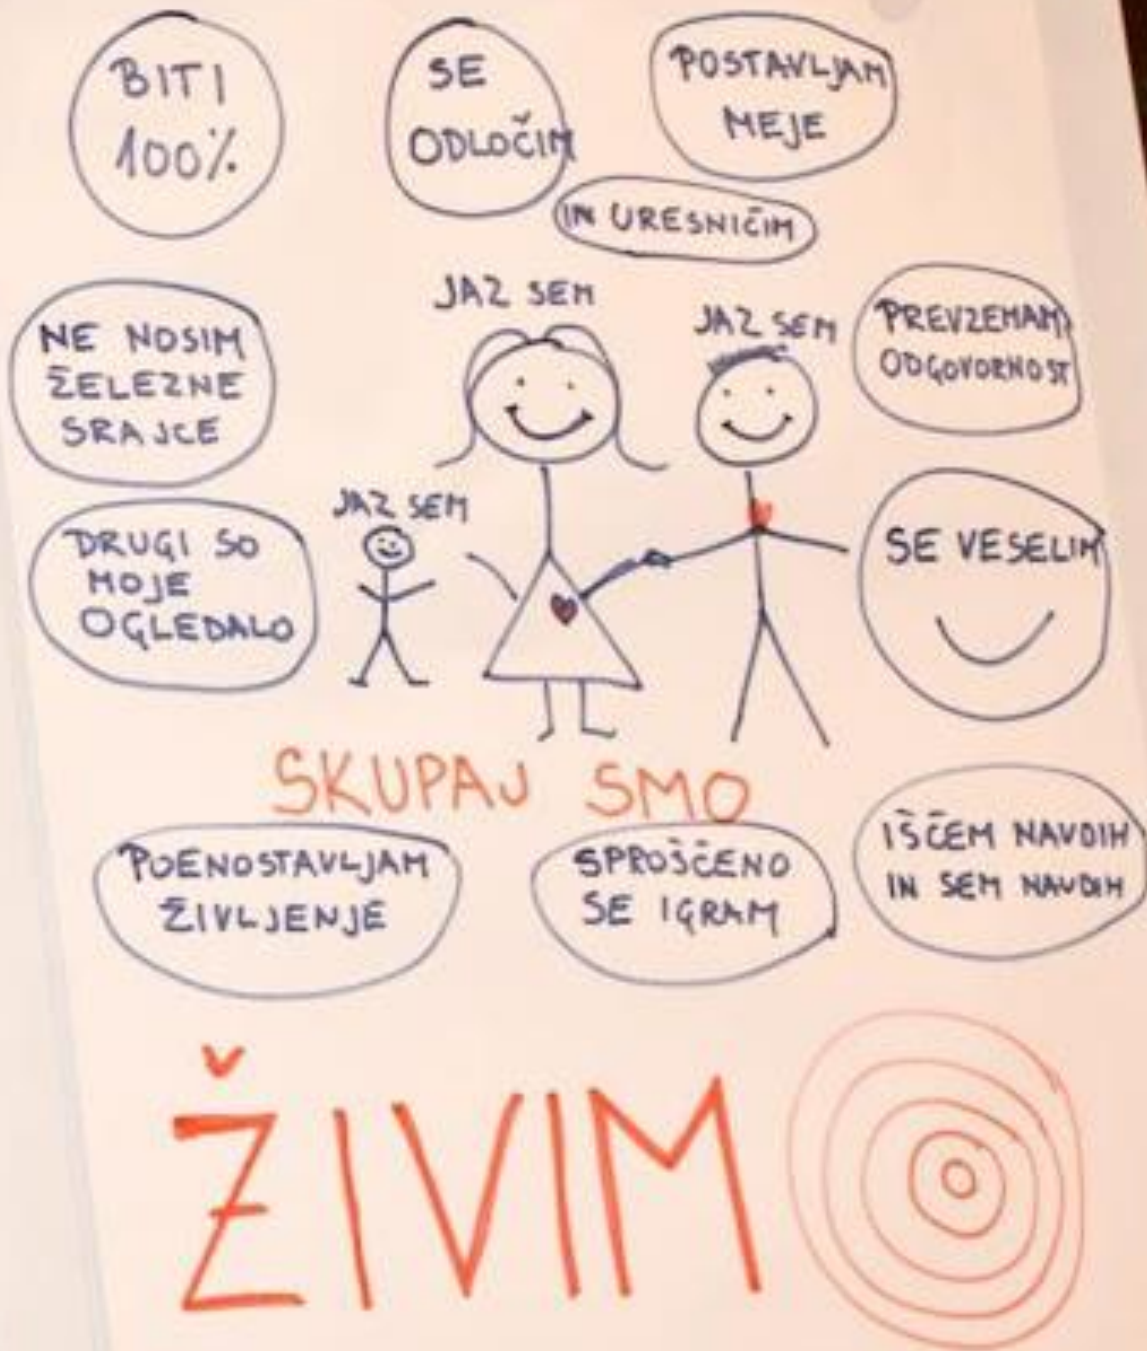 BITI
100%
SE
ODLOČIM
POSTAVLJAM
MEJE
IN URESNIČIM
NE NOSIM
ŽELEZNE
SRAJCE
JAZ SEM
JAZ SEM
PREVZEMAM
ODGOVORNOST
DRUGI SO
MOJE
OGLEDALO
JAZ SEM
SE VESELIM
SKUPAJ SMO
POENOSTAVLJAM
ŽIVLJENJE
SPROŠČENO
SE IGRAM
IŠČEM NAVDIH
IN SEM NAVDIH
ŽIVIM